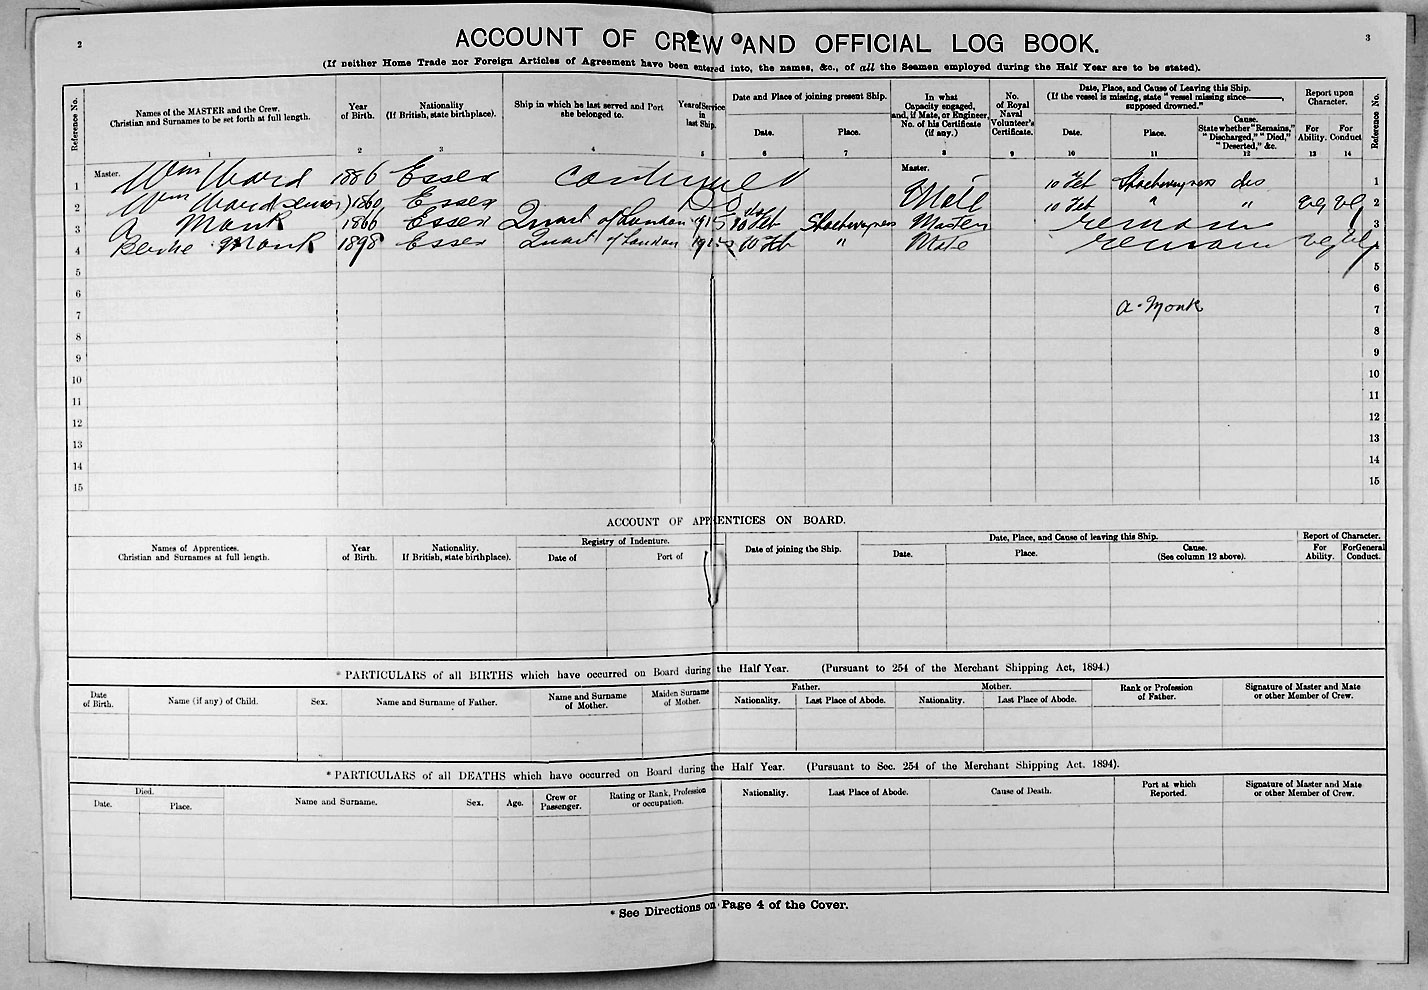 2
3
ACCOUNT OF CREW AND OFFICIAL LOG BOOK.
(If neither Home Trade nor Foreign Articles of Agreement have been entered into, the names, &c., of all the Seamen employed during the Half Year are to be stated).
Reference No.
Names of the MASTER and the Crew. Christian and Surnames to be set forth at full length.
Year of Birth.
Nationality (If British, state birthplace).
Ship in which he last served and Port she belonged to.
Year of Service in last Ship.
Date and Place of joining present Ship.
Date.
Place.
In what Capacity engaged, and, if Mate, or Engineer, No. of his Certificate (if any.)
No. of Royal Naval Volunteer's Certificate.
Date, Place, and Cause of Leaving this Ship.
(If the vessel is missing, state "vessel missing since———, supposed drowned."
Date.
Place.
Cause. State whether "Remains," "Discharged," "Died," "Deserted," &c.
Report upon Character.
For Ability.
For Conduct
Reference No.
1 2 3 4 5 6 7 8 9 10 11 12 13 14
1 Master. Wm Ward 1886 Essex Continued Master. 10 Feb dis 1
2 Wm Ward senior 1860 Essex Do Mate 10 Feb " " vg vg 2
3 A Monk 1866 Essex of London 1915 10 Feb Master remain 3
4 Monk 1898 Essex of London 1915 10 Feb " Mate remain vg vg 4
5 5
6 6
7 A. Monk 7
8 8
9 9
10 10
11 11
12 12
13 13
14 14
15 15
ACCOUNT OF APPRENTICES ON BOARD.
Names of Apprentices. Christian and Surnames at full length.
Year of Birth.
Nationality. If British, state birthplace).
Registry of Indenture.
Date of
Port of
Date of joining the Ship.
Date, Place, and Cause of leaving this Ship.
Date.
Place.
Cause. (See column 12 above).
Report of Character.
For Ability.
For General Conduct.
* PARTICULARS of all BIRTHS which have occurred on Board during the Half Year. (Pursuant to 254 of the Merchant Shipping Act, 1894.)
Date of Birth.
Name (if any) of Child.
Sex.
Name and Surname of Father.
Name and Surname of Mother.
Maiden Surname of Mother.
Father.
Nationality.
Last Place of Abode.
Mother.
Nationality.
Last Place of Abode.
Rank or Profession of Father.
Signature of Master and Mate or other Member of Crew.
* PARTICULARS of all DEATHS which have occurred on Board during the Half Year. (Pursuant to Sec. 254 of the Merchant Shipping Act. 1894).
Died.
Date.
Place.
Name and Surname.
Sex.
Age.
Crew or Passenger.
Rating or Rank, Profession or occupation.
Nationality.
Last Place of Abode.
Cause of Death.
Port at which Reported.
Signature of Master and Mate or other Member of Crew.
* See Directions on Page 4 of the Cover.